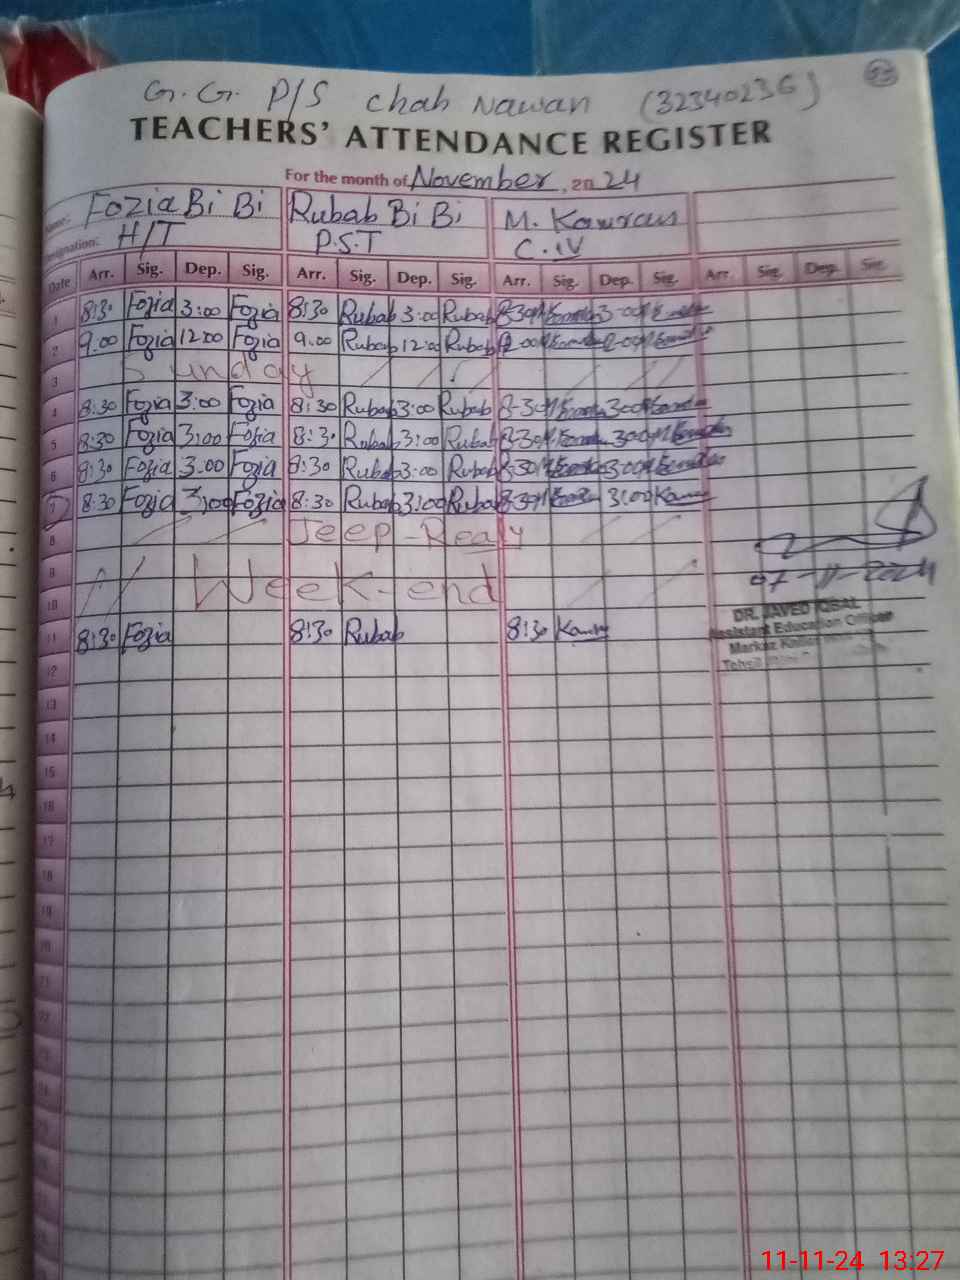 G.G. P/S Chab Nawan (32340236)
TEACHERS' ATTENDANCE REGISTER
For the month of November, 2024
Name: Fozia Bi Bi Rubab Bi Bi M. Kamran
Designation: H/T P.S.T C.IV
Date Arr. Sig. Dep. Sig. Arr. Sig. Dep. Sig. Arr. Sig. Dep. Sig. Arr. Sig. Dep. Sig.
1 8:30 Fozia 3:00 Fozia 8:30 Rubab 3:00 Rubab 8:30 3:00
2 9.00 Fozia 12:00 Fozia 9.00 Rubab 12:00 Rubab
3 Sunday
4 8:30 Fozia 3:00 Fozia 8:30 Rubab 3:00 Rubab 8:30 3:00
5 8:30 Fozia 3:00 Fozia 8:30 Rubab 3:00 Rubab 8:30 3:00
6 8:30 Fozia 3.00 Fozia 8:30 Rubab 3:00 Rubab 8:30 3:00
7 8:30 Fozia 3:00 Fozia 8:30 Rubab 3:00 Rubab 8:30 3:00
8 Jeep-Realy
9
10 Week-end
07-11-2024
DR. JAVED IQBAL
Assistant Education Officer
Markaz
Tehsil
11 8:30 Fozia 8:30 Rubab 8:30
12
13
14
15
16
17
18
19
20
21
22
11-11-24 13:27